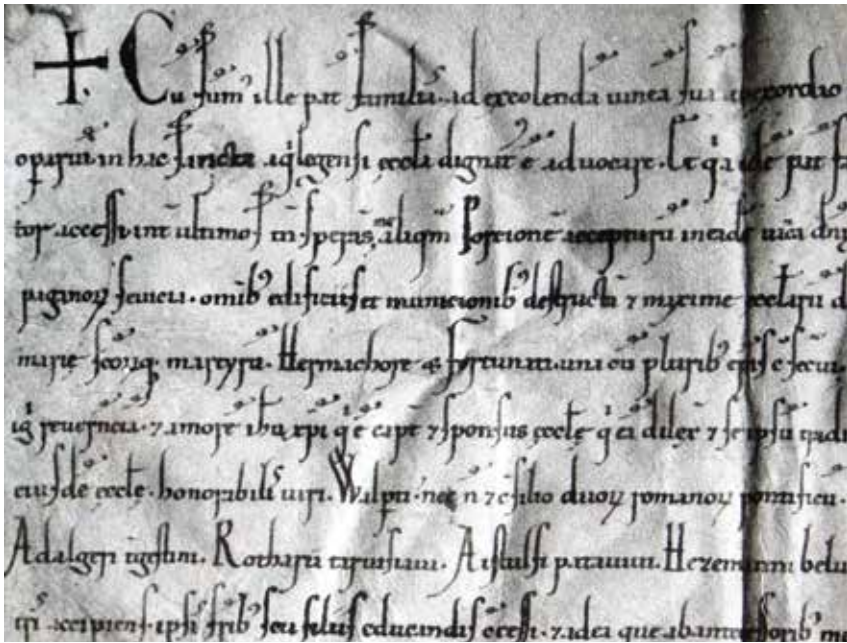 + Cū sum' ille pat familias ad excolenda uinea sua ab exordio
opariis in hac sancta aqlegensi ecctā dignat ē aduocare. Et qa idē pat fa
tor accessi int ultimos tn sperās me aliqm porcionē accepturū in eadē
paganoꝝ seuicia. omib' edificiis et municionib' destructā 7 maxime ecctarū d
marię scoꝝq. martyrū. Hermachore & fortunati. una cū plurib' epis
reuerncia. 7 amore ihu xpi q ē 7 sponsus ecctę q ea dilex 7 se ipsū tradi
eiusdē ecctę. honorabilis uiri. Walpti. nec n 7 csilio duoꝝ romanoꝝ pontificū.
Adalgeri tigestini. Rotharii taruisiani. Aistulfi patauini. belu
accipiens. ipsis frib' seu filiis educandis ccessi. 7 adea que ab antecessorib' m